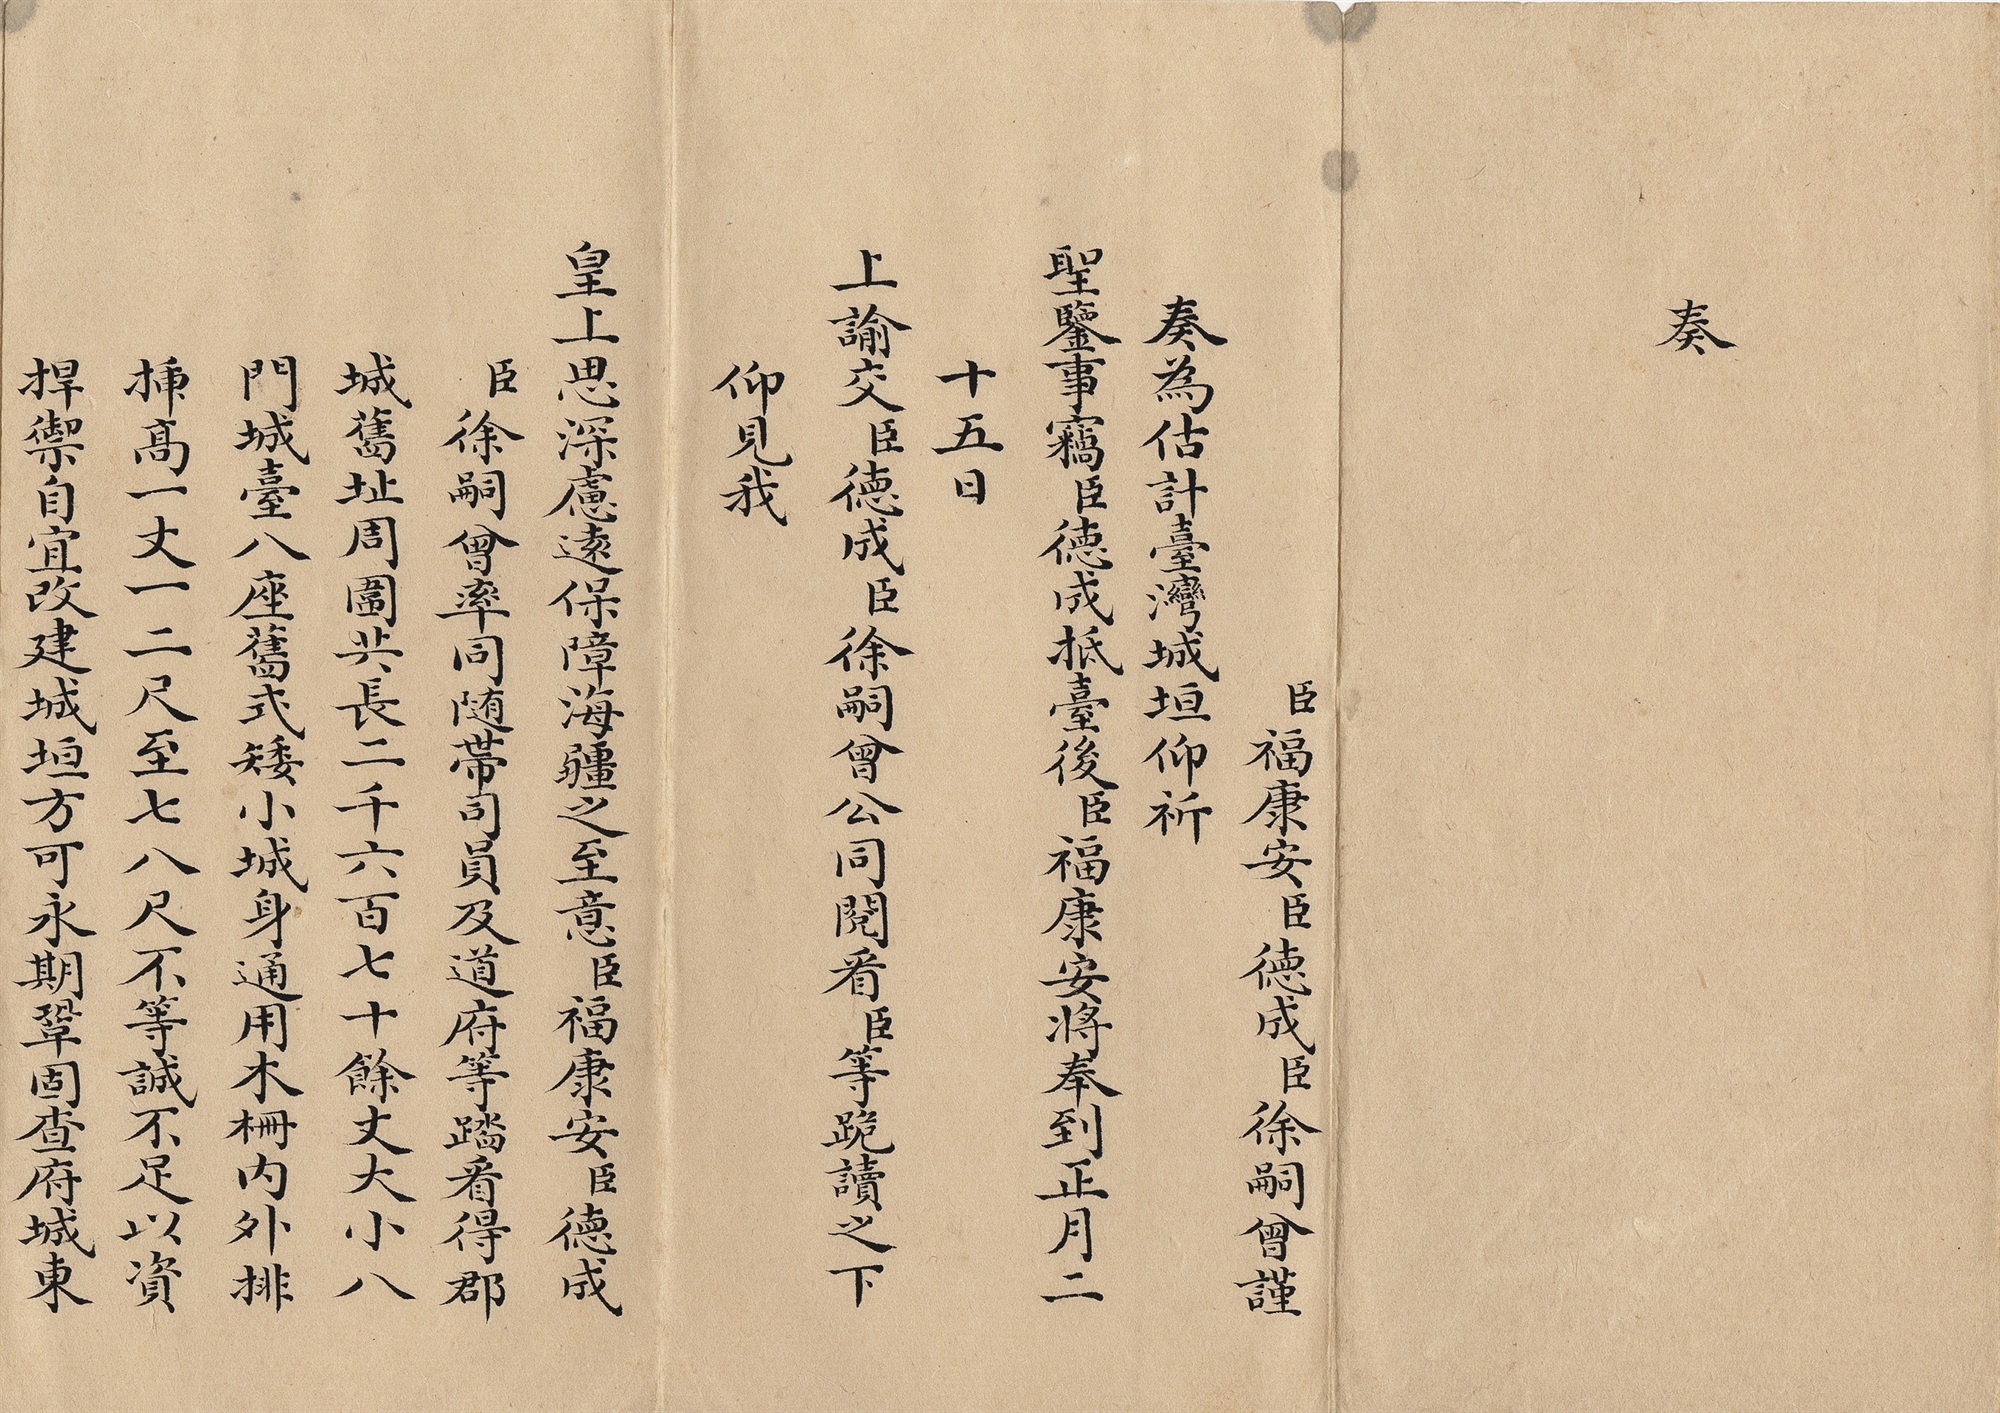 奏
臣福康安臣德成臣徐嗣曾謹
奏為估計臺灣城垣仰祈
聖鑒事竊臣德成抵臺後臣福康安將奉到正月二
十五日
上諭交臣德成臣徐嗣曾公同閱看臣等跪讀之下
仰見我
皇上思深慮遠保障海疆之至意臣福康安臣德成
臣徐嗣曾率同随帶司員及道府等踏看得郡
城舊址周圍共長二千六百七十餘丈大小八
門城臺八座舊式矮小城身通用木柵內外排
插高一丈一二尺至七八尺不等誠不足以資
捍禦自宜改建城垣方可永期鞏固查府城東